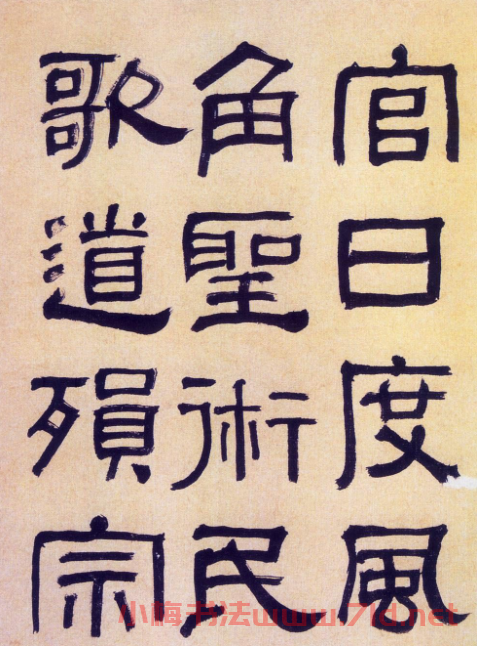 官日度風
角聖術民
歌道殞宗
小梅书法www.7ld.net